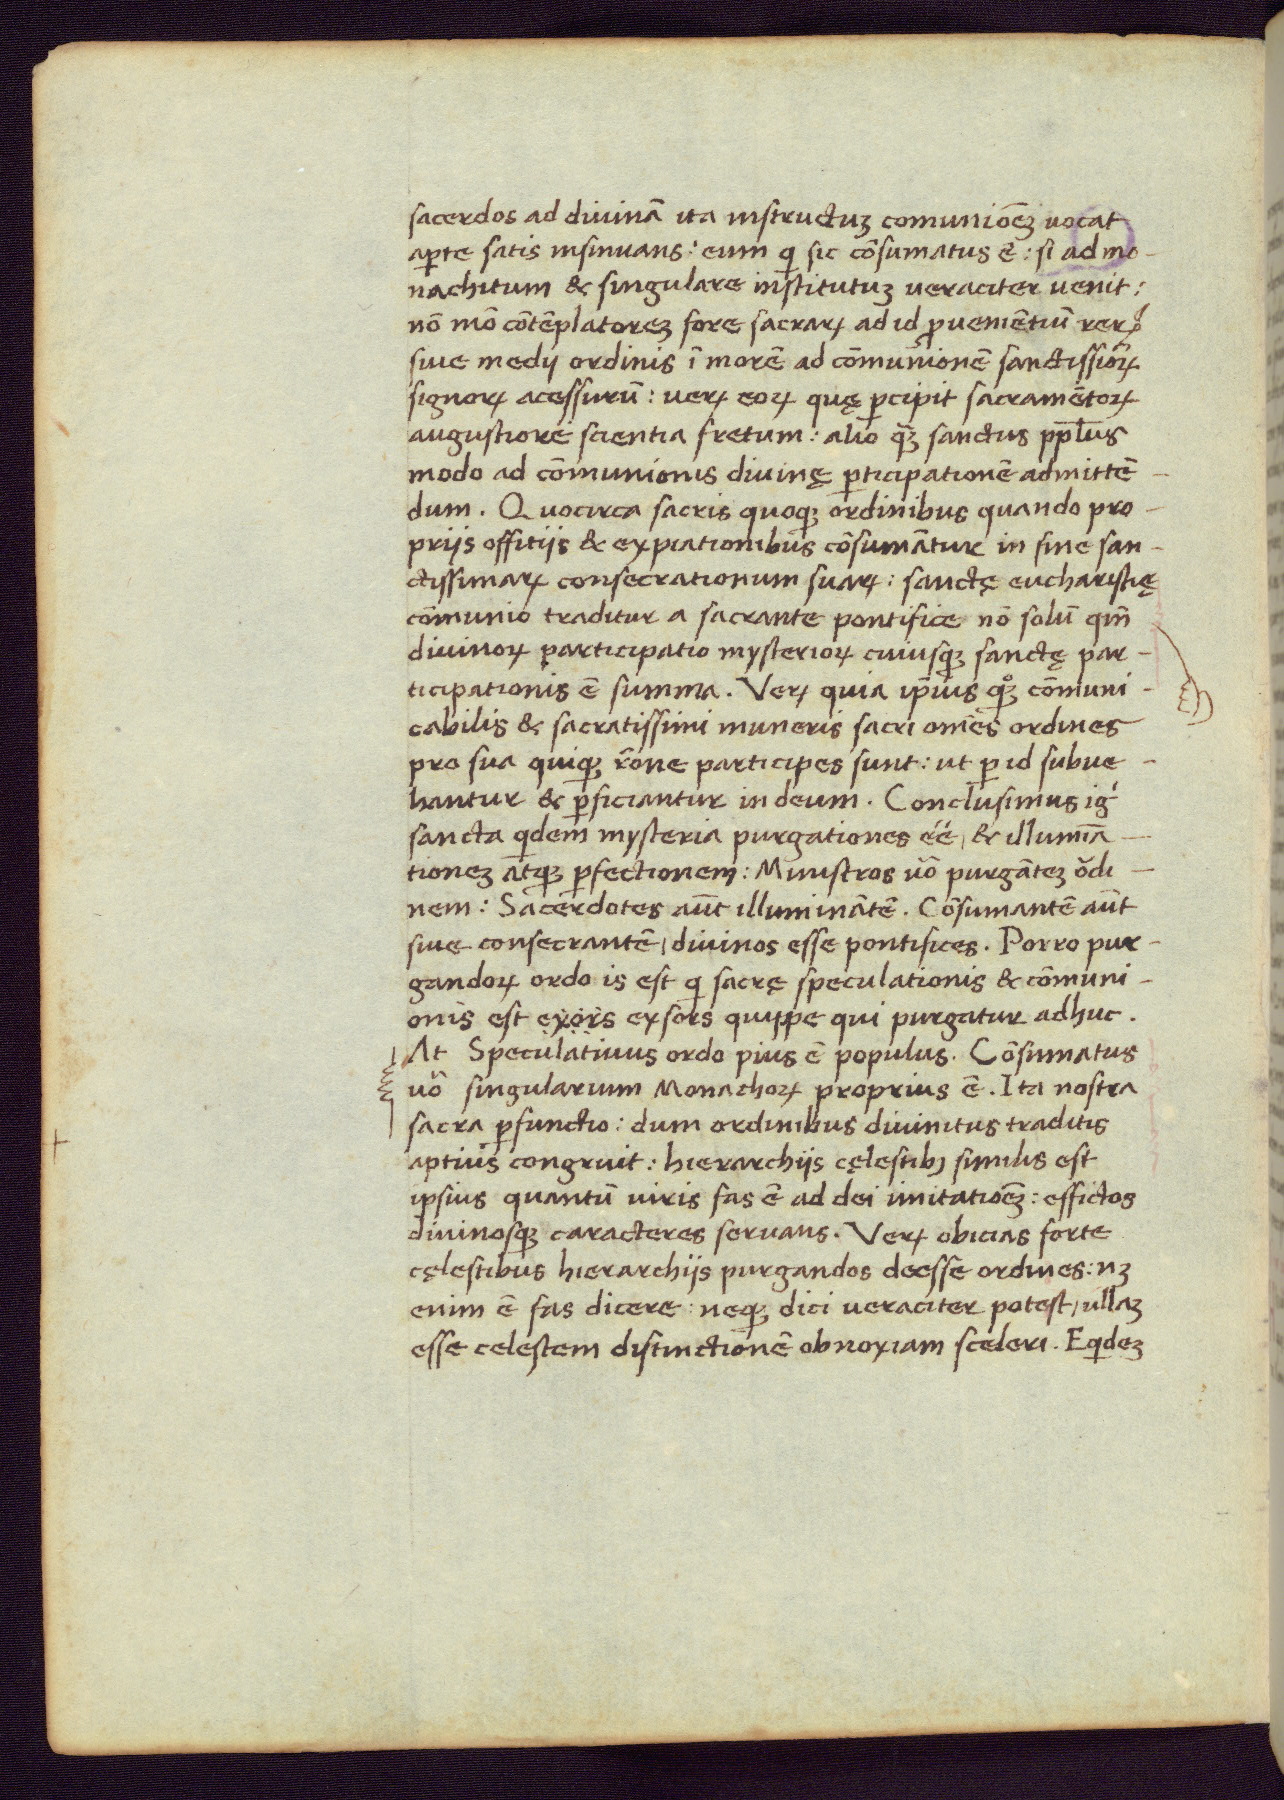 sacerdos ad diuinā ita instructuʒ comuniōeʒ uocat
aꝑte satis insinuans: eum qͥ sic cōsumatus ē: si ad mo-
nachitum & singulare institutuʒ ueraciter uenit:
nō mō cōtēplatoreʒ fore sacraꝝ ad id ꝓuenientiū reꝝ
siue medij ordinis ī morē ad cōmunionē sanctissioꝝ
signoꝝ acessurū: ueꝝ eoꝝ quę ꝑcipit sacramētoꝝ
augustiore scientia fretum: alio qʒ̄ sanctus pp̄lus
modo ad cōmunionis diuinę ꝑticipationē admittē-
dum. Quocirca sacris quoqʒ ordinibus quando pro-
priis offitijs & expiationibus cōsumātur in fine san-
ctissimaꝝ consecrationum suaꝝ: sanctę eucharistię
cōmunio traditur a sacrante pontifice nō solū qm̄
diuinoꝝ participatio mysterioꝝ cuiusqʒ sanctę par-
ticipationis ē summa. Veꝝ quia ip̄ius qʒͦ cōmuni-
cabilis & sacratissimi muneris sacri om̄es ordines
pro sua quiqʒ rōne participes sunt: ut ꝑ id subue-
hantur & ꝑficiantur in deum. Conclusimus igͥ
sancta qͥdem mysteria purgationes éé, & illumīa-
tioneʒ atqʒ ꝑfectionem: Ministros uō purgāteʒ ōdi-
nem: Sacerdotes aūt illuminātē. Cōsumantē aūt
siue consecrantē, diuinos esse pontifices. Porro pur-
gandoꝝ ordo is est qͥ sacrę speculationis & cōmuni-
onis est exors exsors quippe qui purgatur adhuc.
At Speculatiuus ordo pius ē populus. Cōsumatus
uō singularium Monachoꝝ proprius ē. Ita nostra
sacra ꝑfunctio: dum ordinibus diuinitus traditis
aptius congruit: hierarchijs cęlestibʒ similis est
ipsius quantū uiris fas ē ad dei imitatiōeʒ: effictos
diuinosqʒ caracteres seruans. Veꝝ obicias forte
cęlestibus hierarchijs purgandos deesse ordines: nʒ
enim ē fas dicere: neqʒ dici ueraciter potest, ullaʒ
esse celestem distinctionē obnoxiam sceleri. Eqͥdeʒ